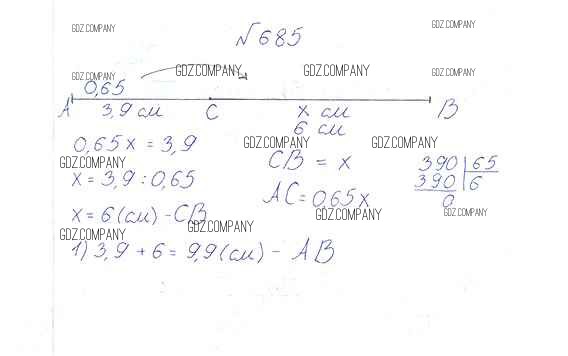 GDZ.COMPANY
GDZ.COMPANY
№685
GDZ.COMPANY
GDZ.COMPANY
GDZ.COMPANY
GDZ.COMPANY
0,65
A 3,9 см C x см B
6 см
0,65x = 3,9
GDZ.COMPANY
GDZ.COMPANY
GDZ.COMPANY
CB = x
390 | 65
390 | 6
0
x = 3,9 : 0,65
AC = 0,65x
GDZ.COMPANY
GDZ.COMPANY
x = 6 (см) - CB
GDZ.COMPANY
GDZ.COMPANY
1) 3,9 + 6 = 9,9 (см) - AB